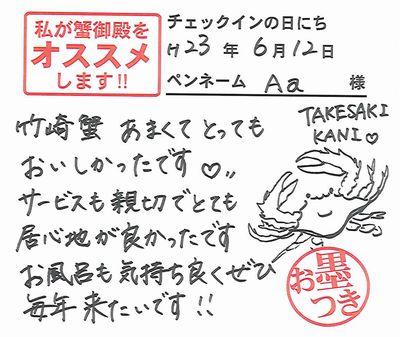 私が蟹御殿を
オススメ
します!!
チェックインの日にち
H23年6月12日
ペンネーム Aa 様
TAKESAKI
KANI♡
竹崎蟹 あまくてとっても
おいしかったです♡,,
サービスも親切でとても
居心地が良かったです
お風呂も気持ち良くぜひ
毎年来たいです!!
お墨つき